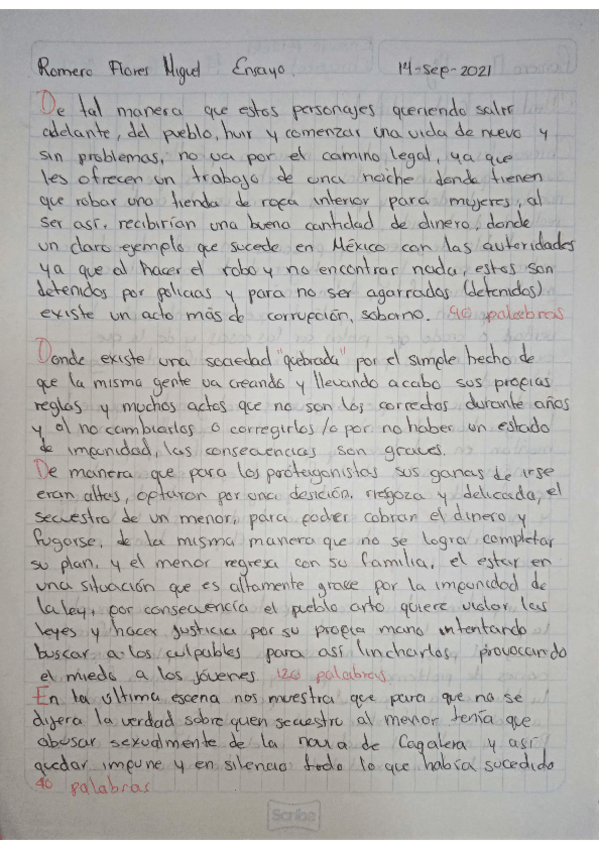 Romero Flores Miguel Ensayo. 14-sep-2021
De tal manera que estos personajes queriendo salir
adelante, del pueblo, huir y comenzar una vida de nuevo y
sin problemas, no va por el camino legal, ya que
les ofrecen un trabajo de una noche donde tienen
que robar una tienda de ropa interior para mujeres, al
ser así, recibirían una buena cantidad de dinero, donde
un claro ejemplo que sucede en México con las autoridades
ya que al hacer el robo y no encontrar nada, estos son
detenidos por policías y para no ser agarrados (detenidos)
existe un acto más de corrupción, soborno. 90 palabras
Donde existe una sociedad "quebrada" por el simple hecho de
que la misma gente va creando y llevando acabo sus propias
reglas y muchos actos que no son los correctos durante años
y al no cambiarlos o corregirlos /o por no haber un estado
de impunidad, las consecuencias son graves.
De manera que para los protagonistas sus ganas de irse
eran altas, optaron por una desición, riesgoza y delicada, el
secuestro de un menor, para poder cobran el dinero y
fugarse, de la misma manera que no se logra completar
su plan, y el menor regresa con su familia, el estar en
una situación que es altamente grave por la impunidad de
la ley, por consecuencia el pueblo arto quiere violar las
leyes y hacer justicia por su propia mano intentando
buscar a los culpables para así lincharlos, provocando
el miedo a los jóvenes 120 palabras
En la última escena nos muestra que para que no se
dijera la verdad sobre quen secuestro al menor tenía que
abusar sexualmente de la novia de Cagalera y así
quedar impune y en silencio todo lo que había sucedido
40 palabras
Scribe